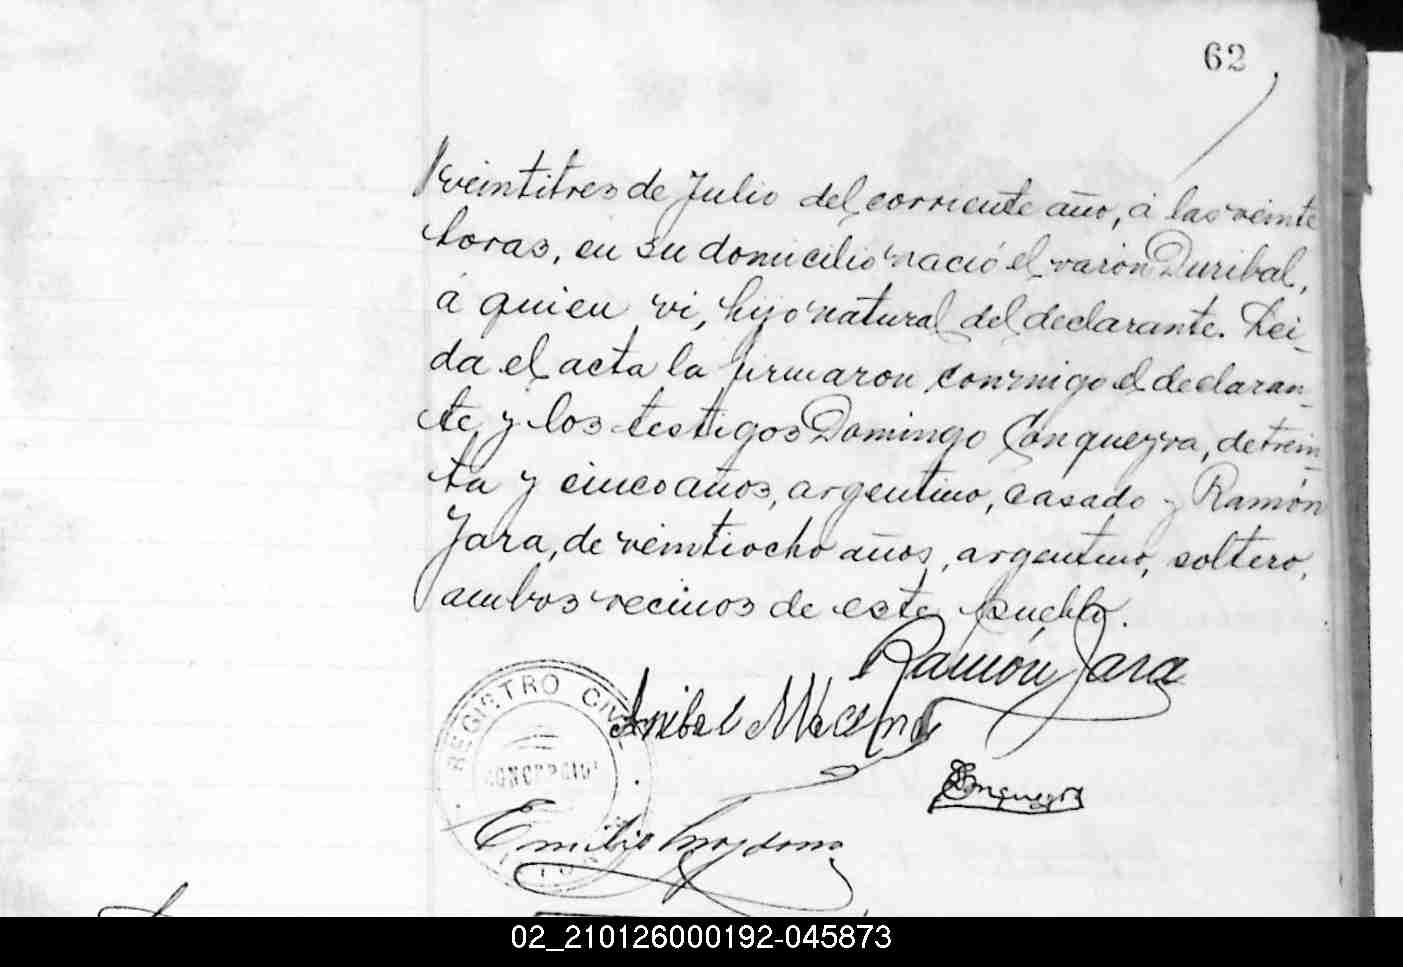 62
veintitres de Julio del corriente año, á las veinte
horas, en su domicilio nació el varón Duribal,
á quien vi, hijo natural del declarante. Lei-
da el acta la firmaron conmigo el declaran-
te y los testigos Domingo Conqueyra, de trein-
ta y cinco años, argentino, casado y Ramón
Jara, de veintiocho años, argentino, soltero,
ambos vecinos de este pueblo.
Ramón Jara
Anibal
REGISTRO CIVIL
CONCEPCION
Conqueyra
Emilio
02_210126000192-045873